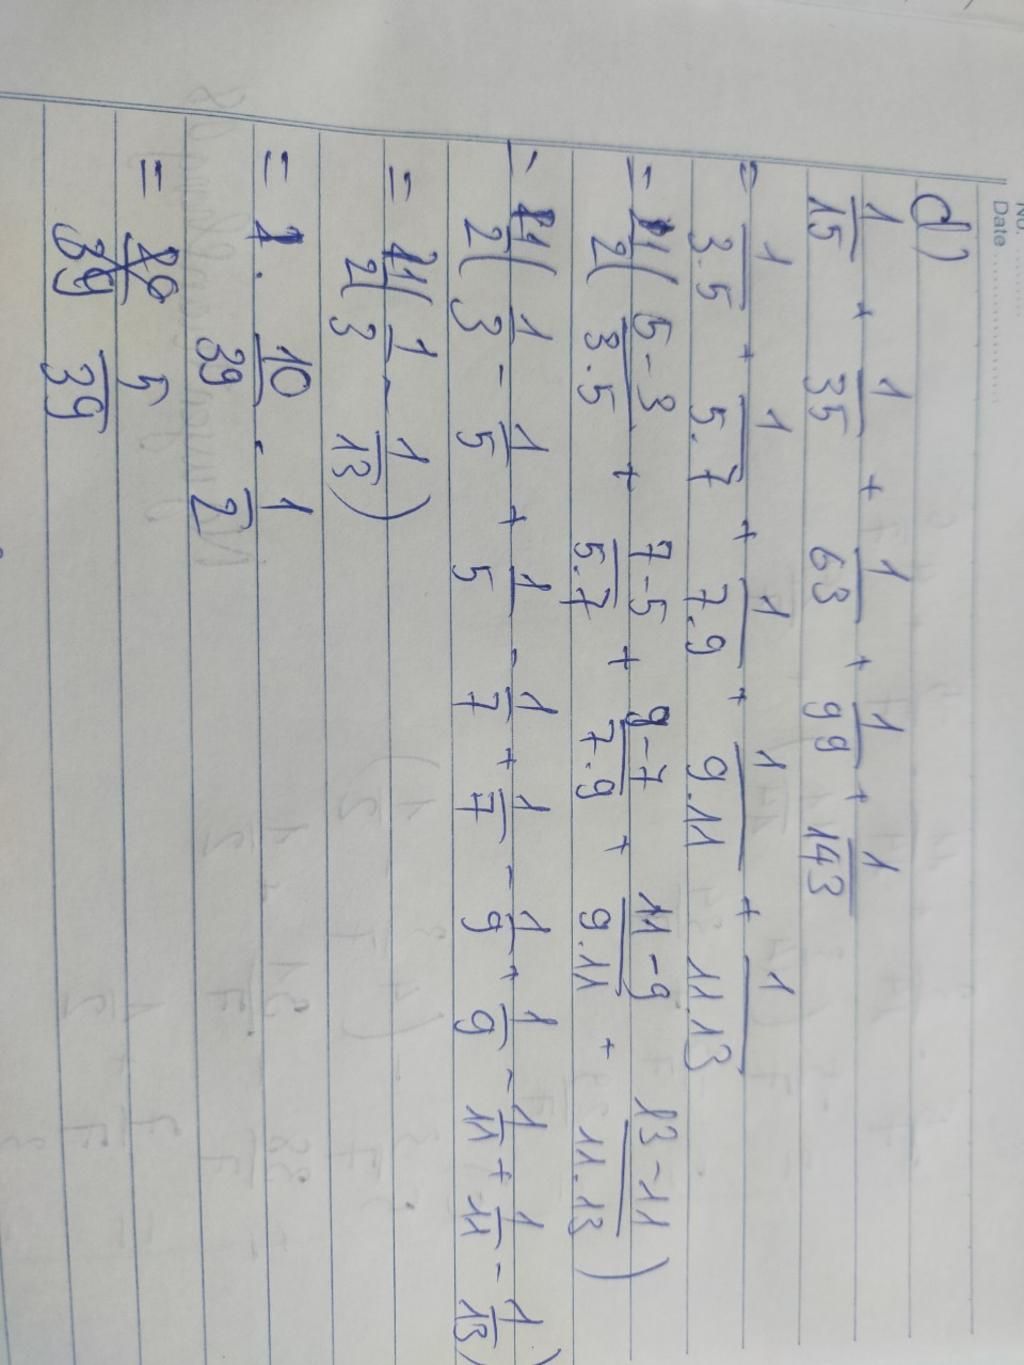 No. ..........
Date ..........
d)
1/15 + 1/35 + 1/63 + 1/99 + 1/143
= 1/3.5 + 1/5.7 + 1/7.9 + 1/9.11 + 1/11.13
= 1/2( 5-3/3.5 + 7-5/5.7 + 9-7/7.9 + 11-9/9.11 + 13-11/11.13 )
= 1/2( 1/3 - 1/5 + 1/5 - 1/7 + 1/7 - 1/9 + 1/9 - 1/11 + 1/11 - 1/13 )
= 1/2( 1/3 - 1/13 )
= 1. 10/39 . 1/2
= 5/39